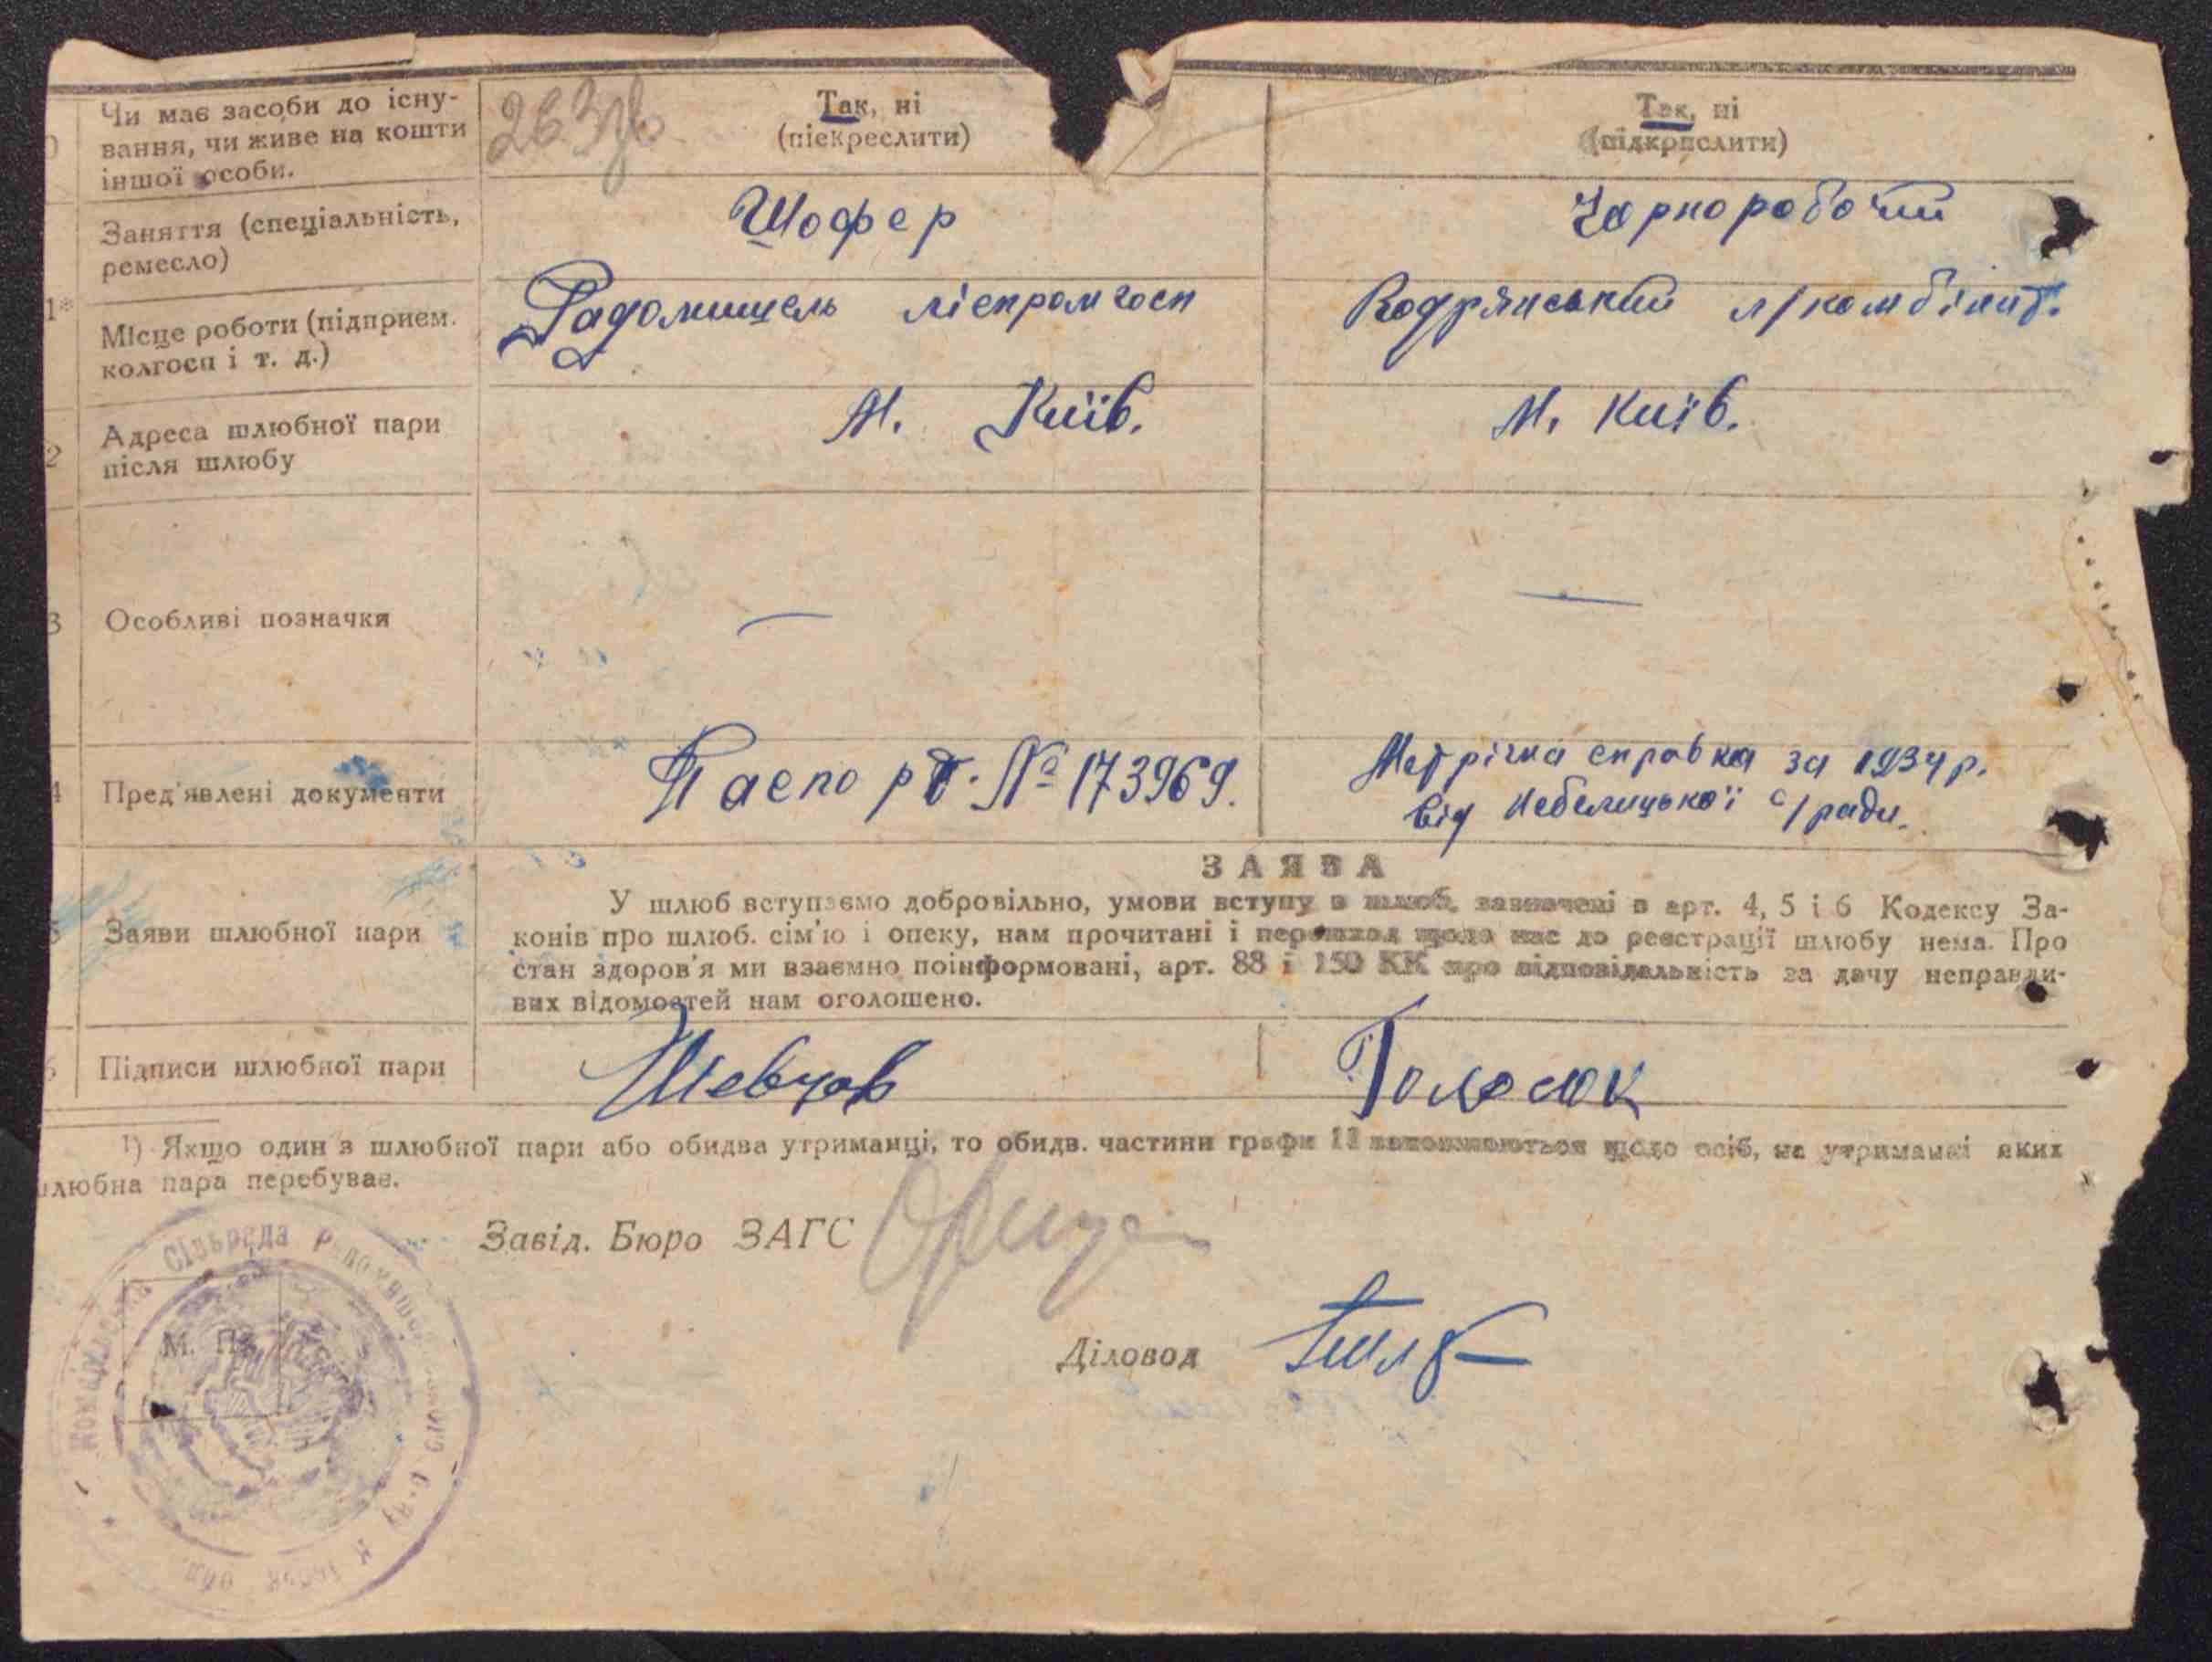 Чи має засоби до існу-
вання, чи живе на кошти
іншої особи.
Так, ні
(піекреслити)
Так, ні
Заняття (спеціальність,
ремесло)
Шофер
Чорноробочий
1*
Місце роботи (підприєм.
колгосп і т. д.)
Радомишель ліспромгосп
лісокомбінат.
2
Адреса шлюбної пари
після шлюбу
М. Київ.
М. Київ.
3
Особливі позначки
—
—
4
Пред'явлені документи
Паспорт. № 173969.
Метрічна справка за 1934 р.
від Небелицької с/ради.
Заяви шлюбної пари
ЗАЯВА
У шлюб вступаємо добровільно, умови вступу в шлюб, зазначені в арт. 4, 5 і 6 Кодексу За-
конів про шлюб. сім'ю і опеку, нам прочитані і перешкод щодо нас до реєстрації шлюбу нема. Про
стан здоров'я ми взаємно поінформовані, арт. 88 і 150 КК про відповідальність за дачу неправди-
вих відомостей нам оголошено.
Підписи шлюбної пари
Шевчов
Голосюк
1) Якщо один з шлюбної пари або обидва утриманці, то обидв. частини графи 11 заповнюються щодо осіб, на утриманні яких
шлюбна пара перебуває.
Завід. Бюро ЗАГС
Діловод
М. П.
сільрада